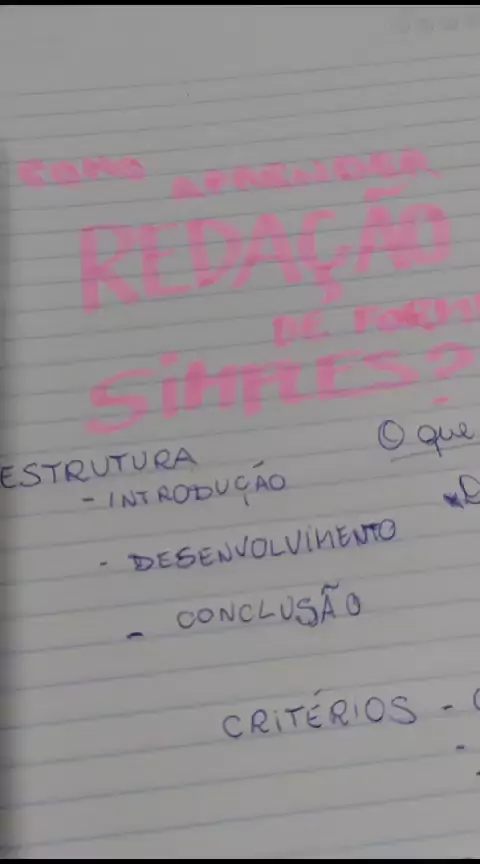 COMO APRENDER
REDAÇÃO
DE FORM
SIMPLES?
ESTRUTURA
- INTRODUÇÃO
- DESENVOLVIMENTO
- CONCLUSÃO
O que
CRITÉRIOS -